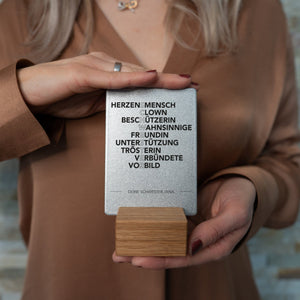 HERZENSMENSCH
CLOWN
BESCHÜTZERIN
WAHNSINNIGE
FREUNDIN
UNTERSTÜTZUNG
TRÖSTERIN
VERBÜNDETE
VORBILD
DEINE SCHWESTER